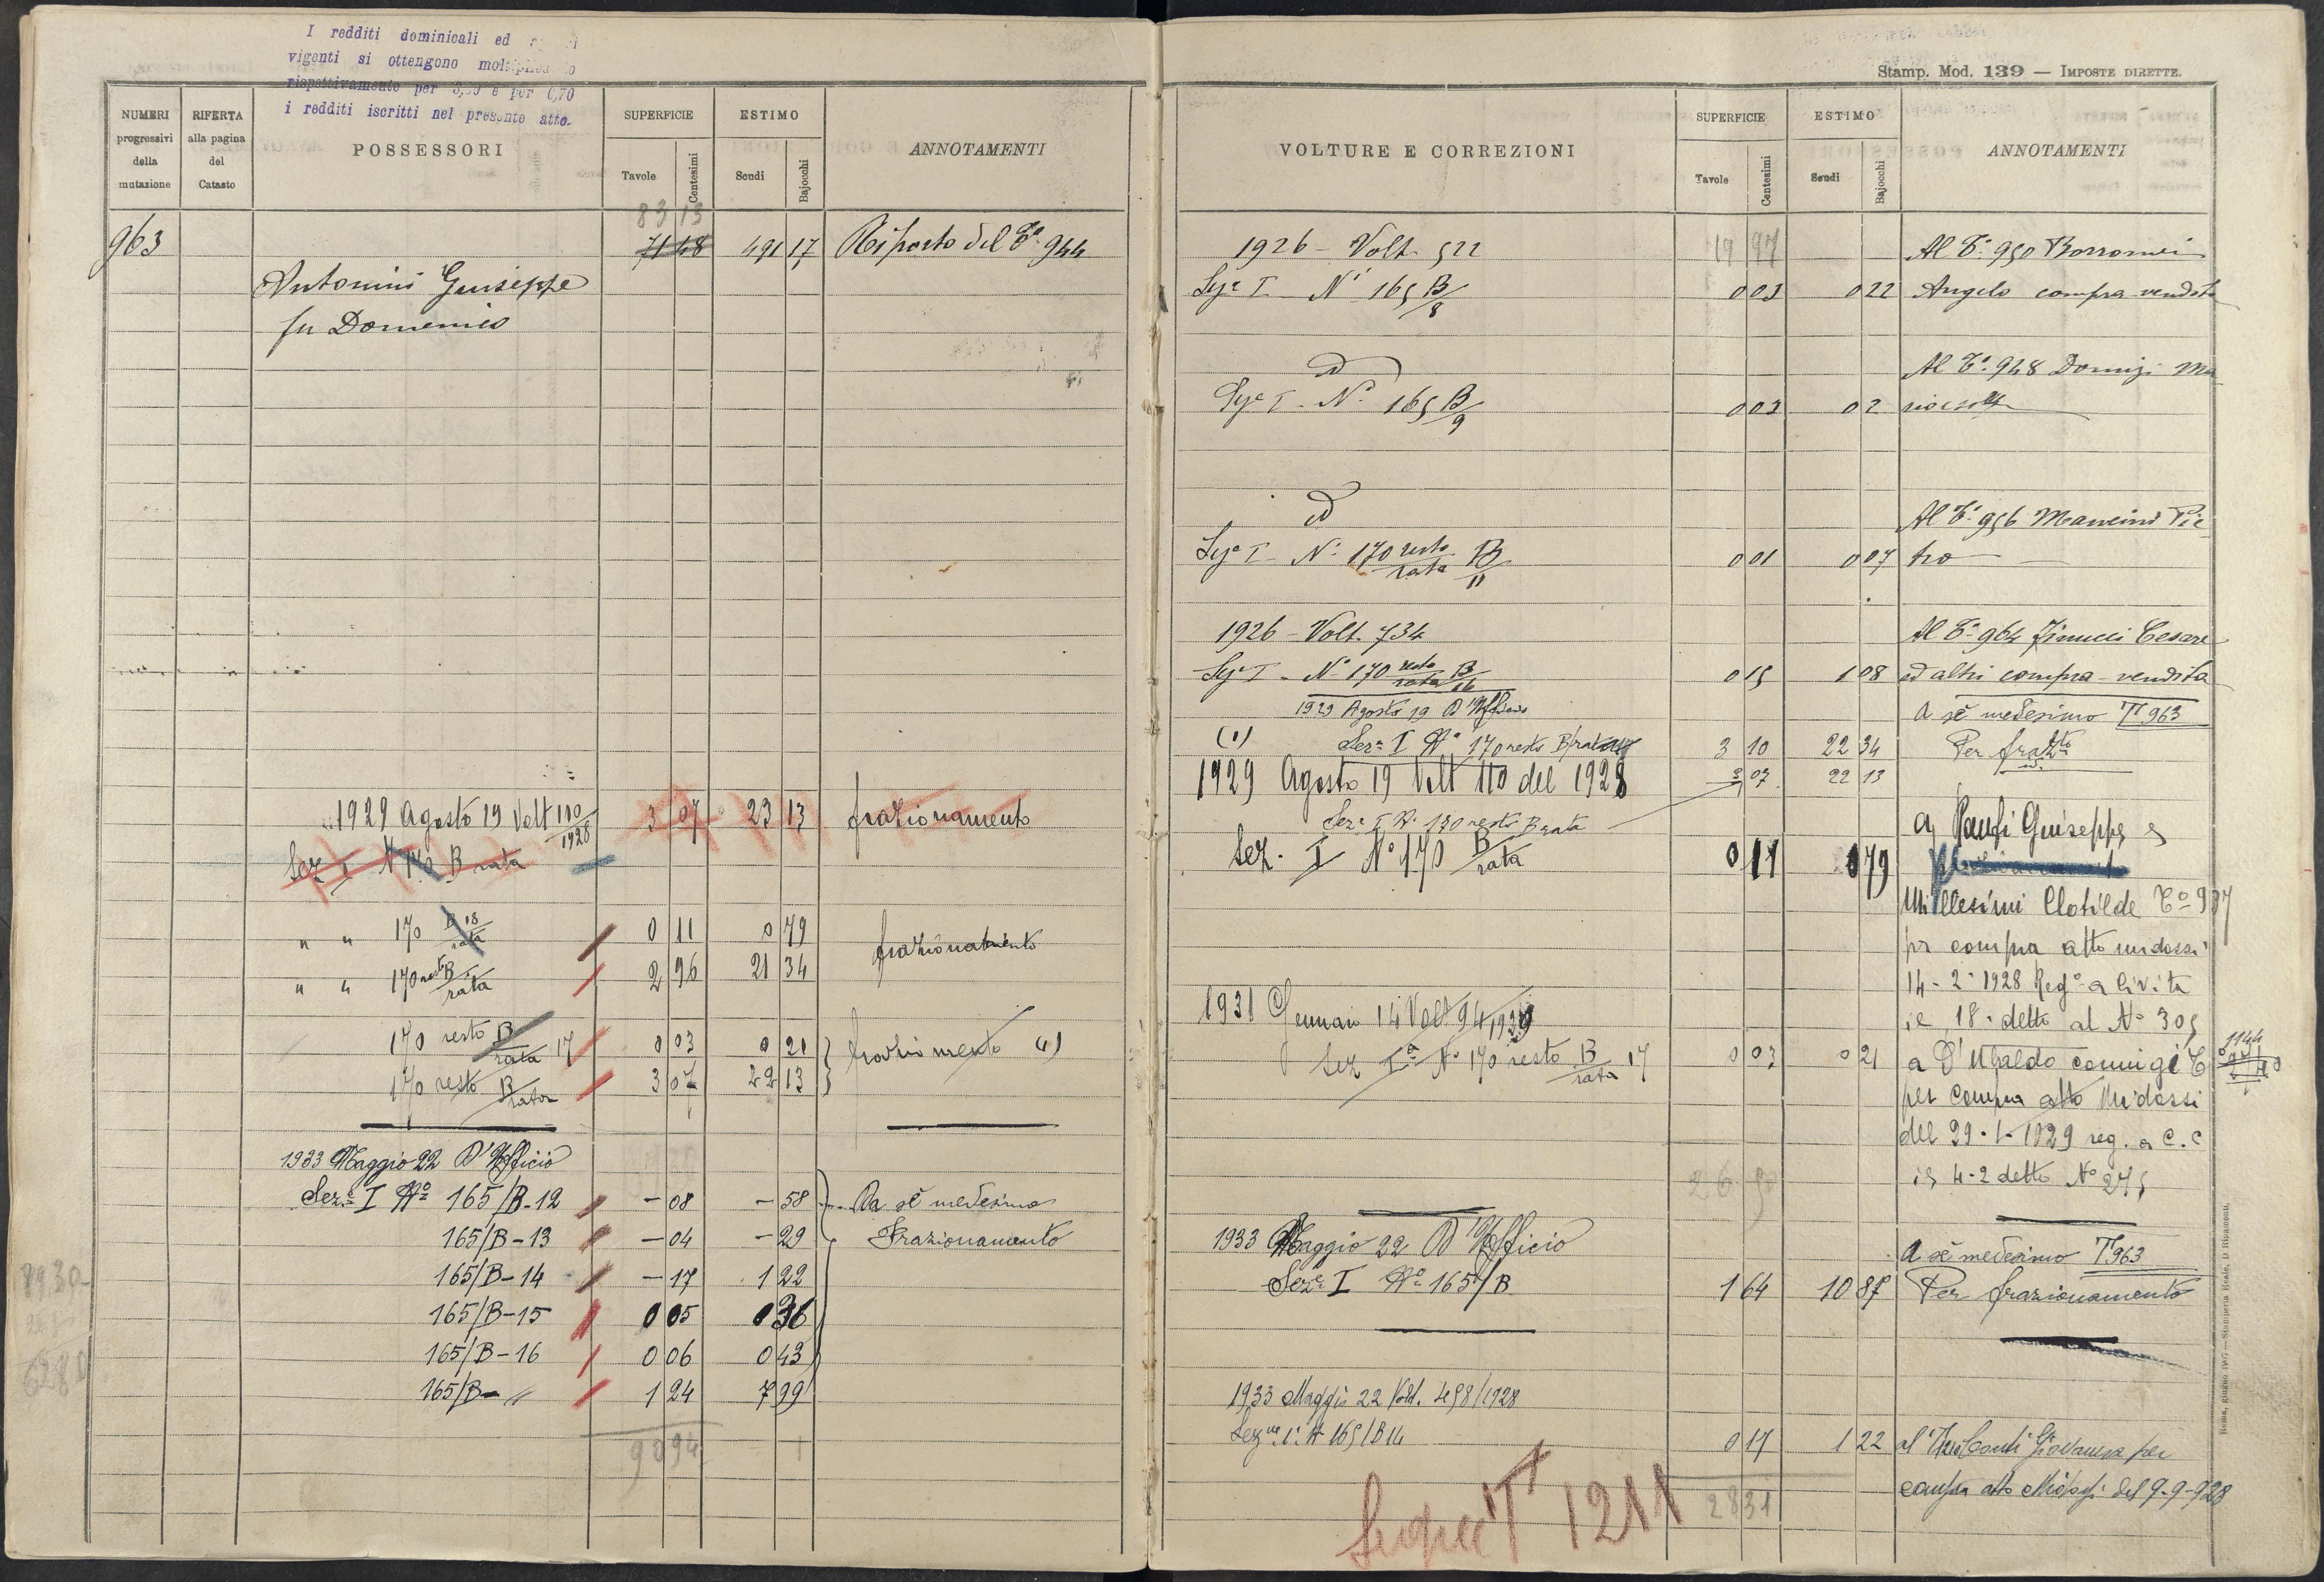 I redditi dominicali ed
vigenti si ottengono
rispettivamente per e per 0,70
i redditi iscritti nel presente atto.
NUMERI progressivi della mutazione
RIFERTA alla pagina del Catasto
POSSESSORI
SUPERFICIE
Tavole
Centesimi
ESTIMO
Scudi
Bajocchi
ANNOTAMENTI
83 13
963 71 48 491 17 Riporto del T.º 944
Antonini Giuseppe
fu Domenico
1929 Agosto 19 Volt 110/1928 3 07 23 13 frazionamento
Sez I N 170 B rata
" " 170 B 18/rata 0 11 0 79 frazionamento
" " 170 resto B/rata 2 96 21 34
170 resto B/rata 17 0 03 0 21 frazionamento (1)
170 resto B/rata 3 07 22 13
1933 Maggio 22 D'Ufficio
Sez.e I Nº 165/B-12 - 08 - 58 Da sé medesimo
165/B-13 - 04 - 29 Frazionamento
165/B-14 - 17 1 22
165/B-15 0 05 0 36
165/B-16 0 06 0 43
165/B- " 1 24 7 99
90 94
Stamp. Mod. 139 — IMPOSTE DIRETTE.
VOLTURE E CORREZIONI
SUPERFICIE
Tavole
Centesimi
ESTIMO
Scudi
Bajocchi
ANNOTAMENTI
1926 - Volt. 522 19 97 Al T.º 950 Borromei
Sez.e I N.º 165 B/8 0 03 0 22 Angelo compra vendita
id Al T.º 948 Domizi Ma
Sez.e I - N.º 165 B/9 0 03 0 2
id Al T.º 956 Mancini Pie
Sez.e I - N.º 170 resto/rata B/11 0 01 0 07 tro
1926 - Volt. 734 Al T.º 964 Zinucci Cesare
Sez.e I - N.º 170 resto/rata B/16 0 15 1 08 ed altri compra-vendita
1929 Agosto 19 D'Ufficio A sé medesimo T 963
(1) Sez.e I Nº 170 resto B/rata 3 10 22 34 Per fraz.to
1929 Agosto 19 Volt 110 del 1928 3 07 22 13
Sez.e I N. 170 resto B rata a Paulfi Giuseppe e
Sez. I Nº 170 B/rata 0 11 0 79
Millesimi Clotilde Tº 937
per compra atto Midossi
14-2-1928 Regº a Civita
ie 18. detto al Nº 305
1931 Gennaio 14 Volt 94/1929
Sez Iª Nº 170 resto B/rata 17 0 03 0 21 a D'Ubaldo coniugi T 1144
per compra atto Midossi
del 29-1-1929 reg. a C.C
ie 4-2 detto Nº 275
26 90
1933 Maggio 22 D'Ufficio A sé medesimo T 963
Sez.e I Nº 165/B 1 64 10 87 Per frazionamento
1933 Maggio 22 Volt. 458/1928
Sez.ne 1ª N 165/B 14 0 17 1 22 Conti Giovanna per
compra atto Midossi del 9-9-928
28 31
Segue T 1211